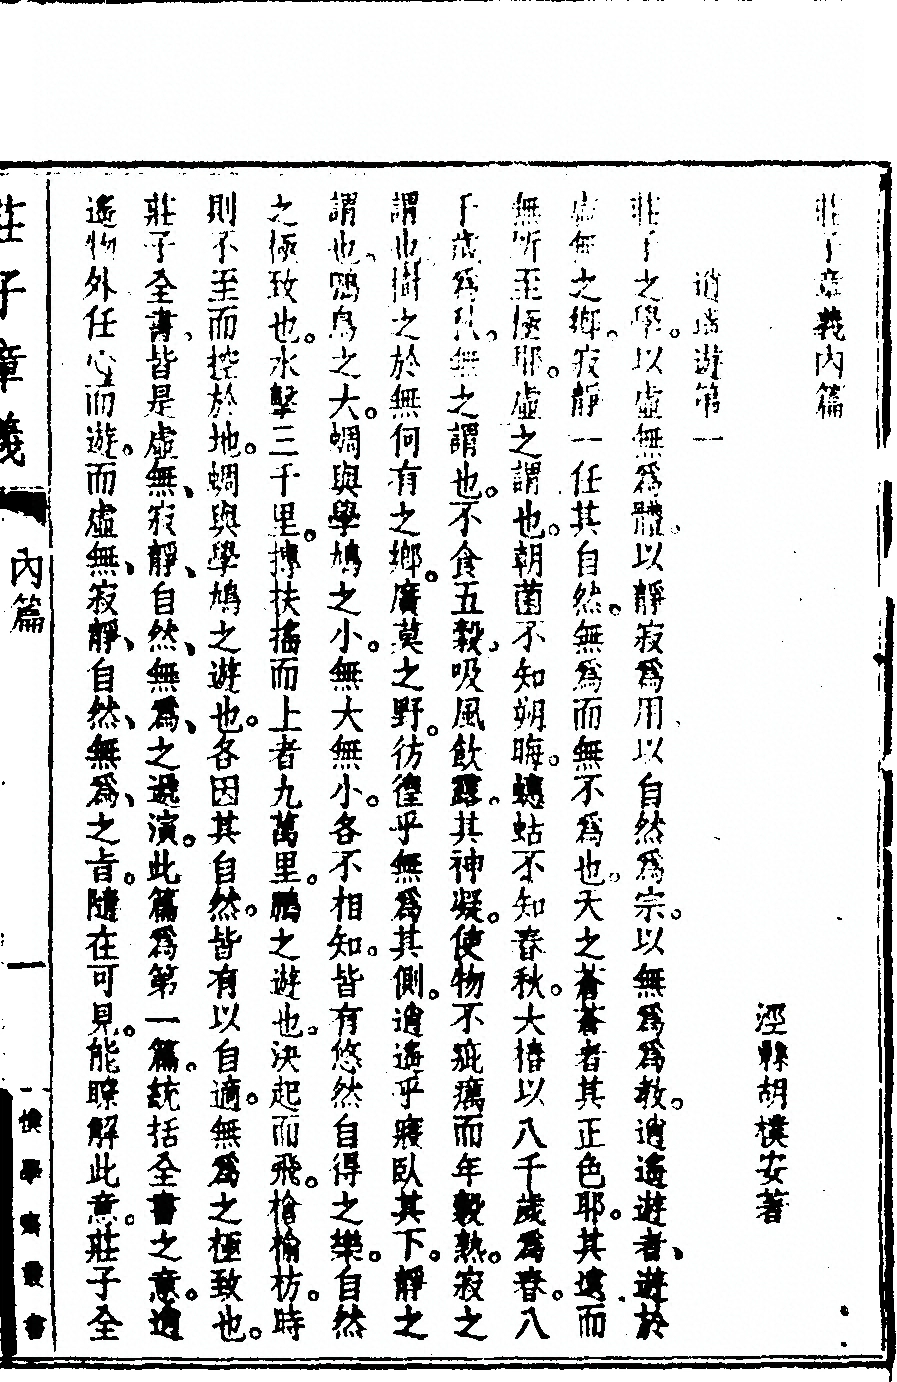 莊子章義內篇
涇縣胡樸安著
逍遙遊第一
莊子之學。以虛無爲體。以靜寂爲用、以自然爲宗。以無爲爲教。逍遙遊者、遊於
虛無之鄉。寂靜一任其自然。無爲而無不爲也。天之蒼蒼者其正色耶。其遠而
無所至極耶。虛之謂也。朝菌不知朔晦。蟪蛄不知春秋。大椿以八千歲爲春。八
千歲爲秋。無之謂也。不食五穀。吸風飲露。其神凝。使物不疵癘而年穀熟。寂之
謂也。樹之於無何有之鄉。廣莫之野。彷徨乎無爲其側。逍遙乎寢臥其下。靜之
謂也。鴨鳥之大。蜩與學鳩之小。無大無小。各不相知。皆有悠然自得之樂。自然
之極致也。水擊三千里。摶扶搖而上者九萬里。鵬之遊也。決起而飛。槍榆枋。時
則不至而控於地。蜩與學鳩之遊也。各因其自然。皆有以自適。無爲之極致也。
莊子全書。皆是虛無、寂靜、自然、無爲、之遞演。此篇爲第一篇。統括全書之意。逍
遙物外任心而遊。而虛無、寂靜、自然、無爲、之旨。隨在可見。能瞭解此意。莊子全
莊子章義
內篇
一
樸學齋叢書